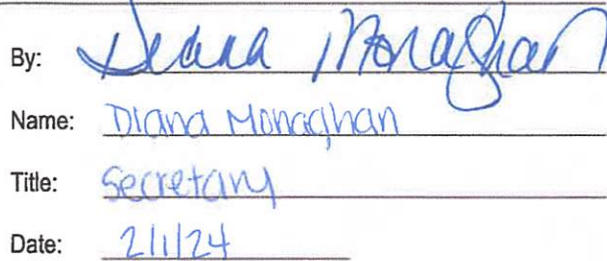 By: Diana Monaghan
Name: Diana Monaghan
Title: Secretary
Date: 2/1/24